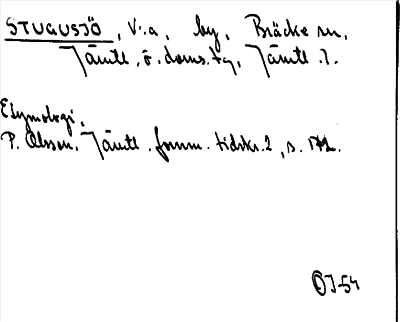 STUGUSJÖ, V:a, by, Bräcke sn,
Jämtl. ö. doms. tg, Jämtl. l.
Etymologi.
P. Olsson. Jämtl. fornm. tidskr. 2, s.
OJ-54